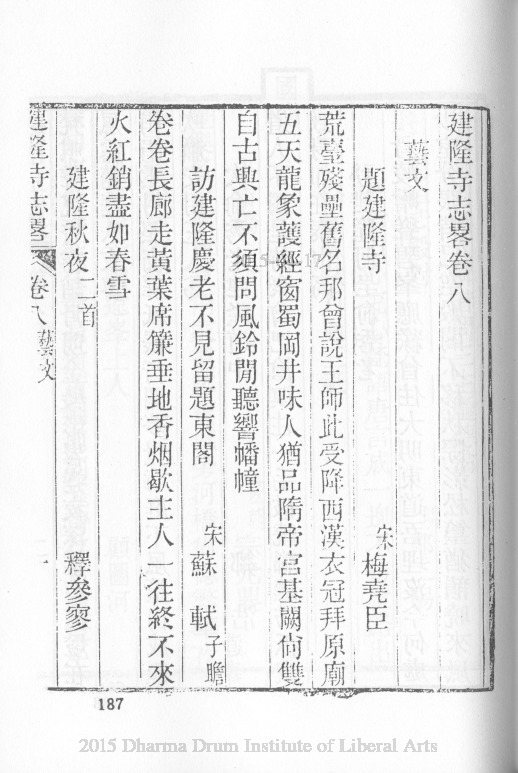 建隆寺志畧卷八
藝文
題建隆寺　宋梅堯臣
荒臺殘壘舊名邦曾說王師此受降西漢衣冠拜原廟
五天龍象護經窗蜀岡井味人猶品隋帝宮基闕尙雙
自古興亡不須問風鈴閒聽響幡幢
訪建隆慶老不見留題東閣　宋蘇軾子瞻
卷卷長廊走黃葉席簾垂地香烟歇主人一往終不來
火紅銷盡如春雪
建隆秋夜二首　釋參寥
建隆寺志畧　卷八藝文　一
187
2015 Dharma Drum Institute of Liberal Arts